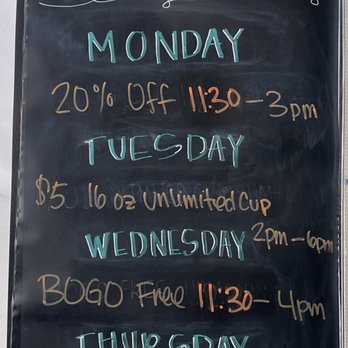 MONDAY
20% Off 11:30-3pm
TUESDAY
$5 16 oz Unlimited Cup
2pm-6pm
WEDNESDAY
BOGO Free 11:30-4pm
THURSDAY